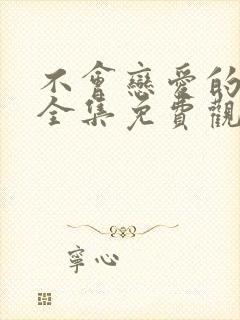 不會戀愛的
全集免費觀
寧心